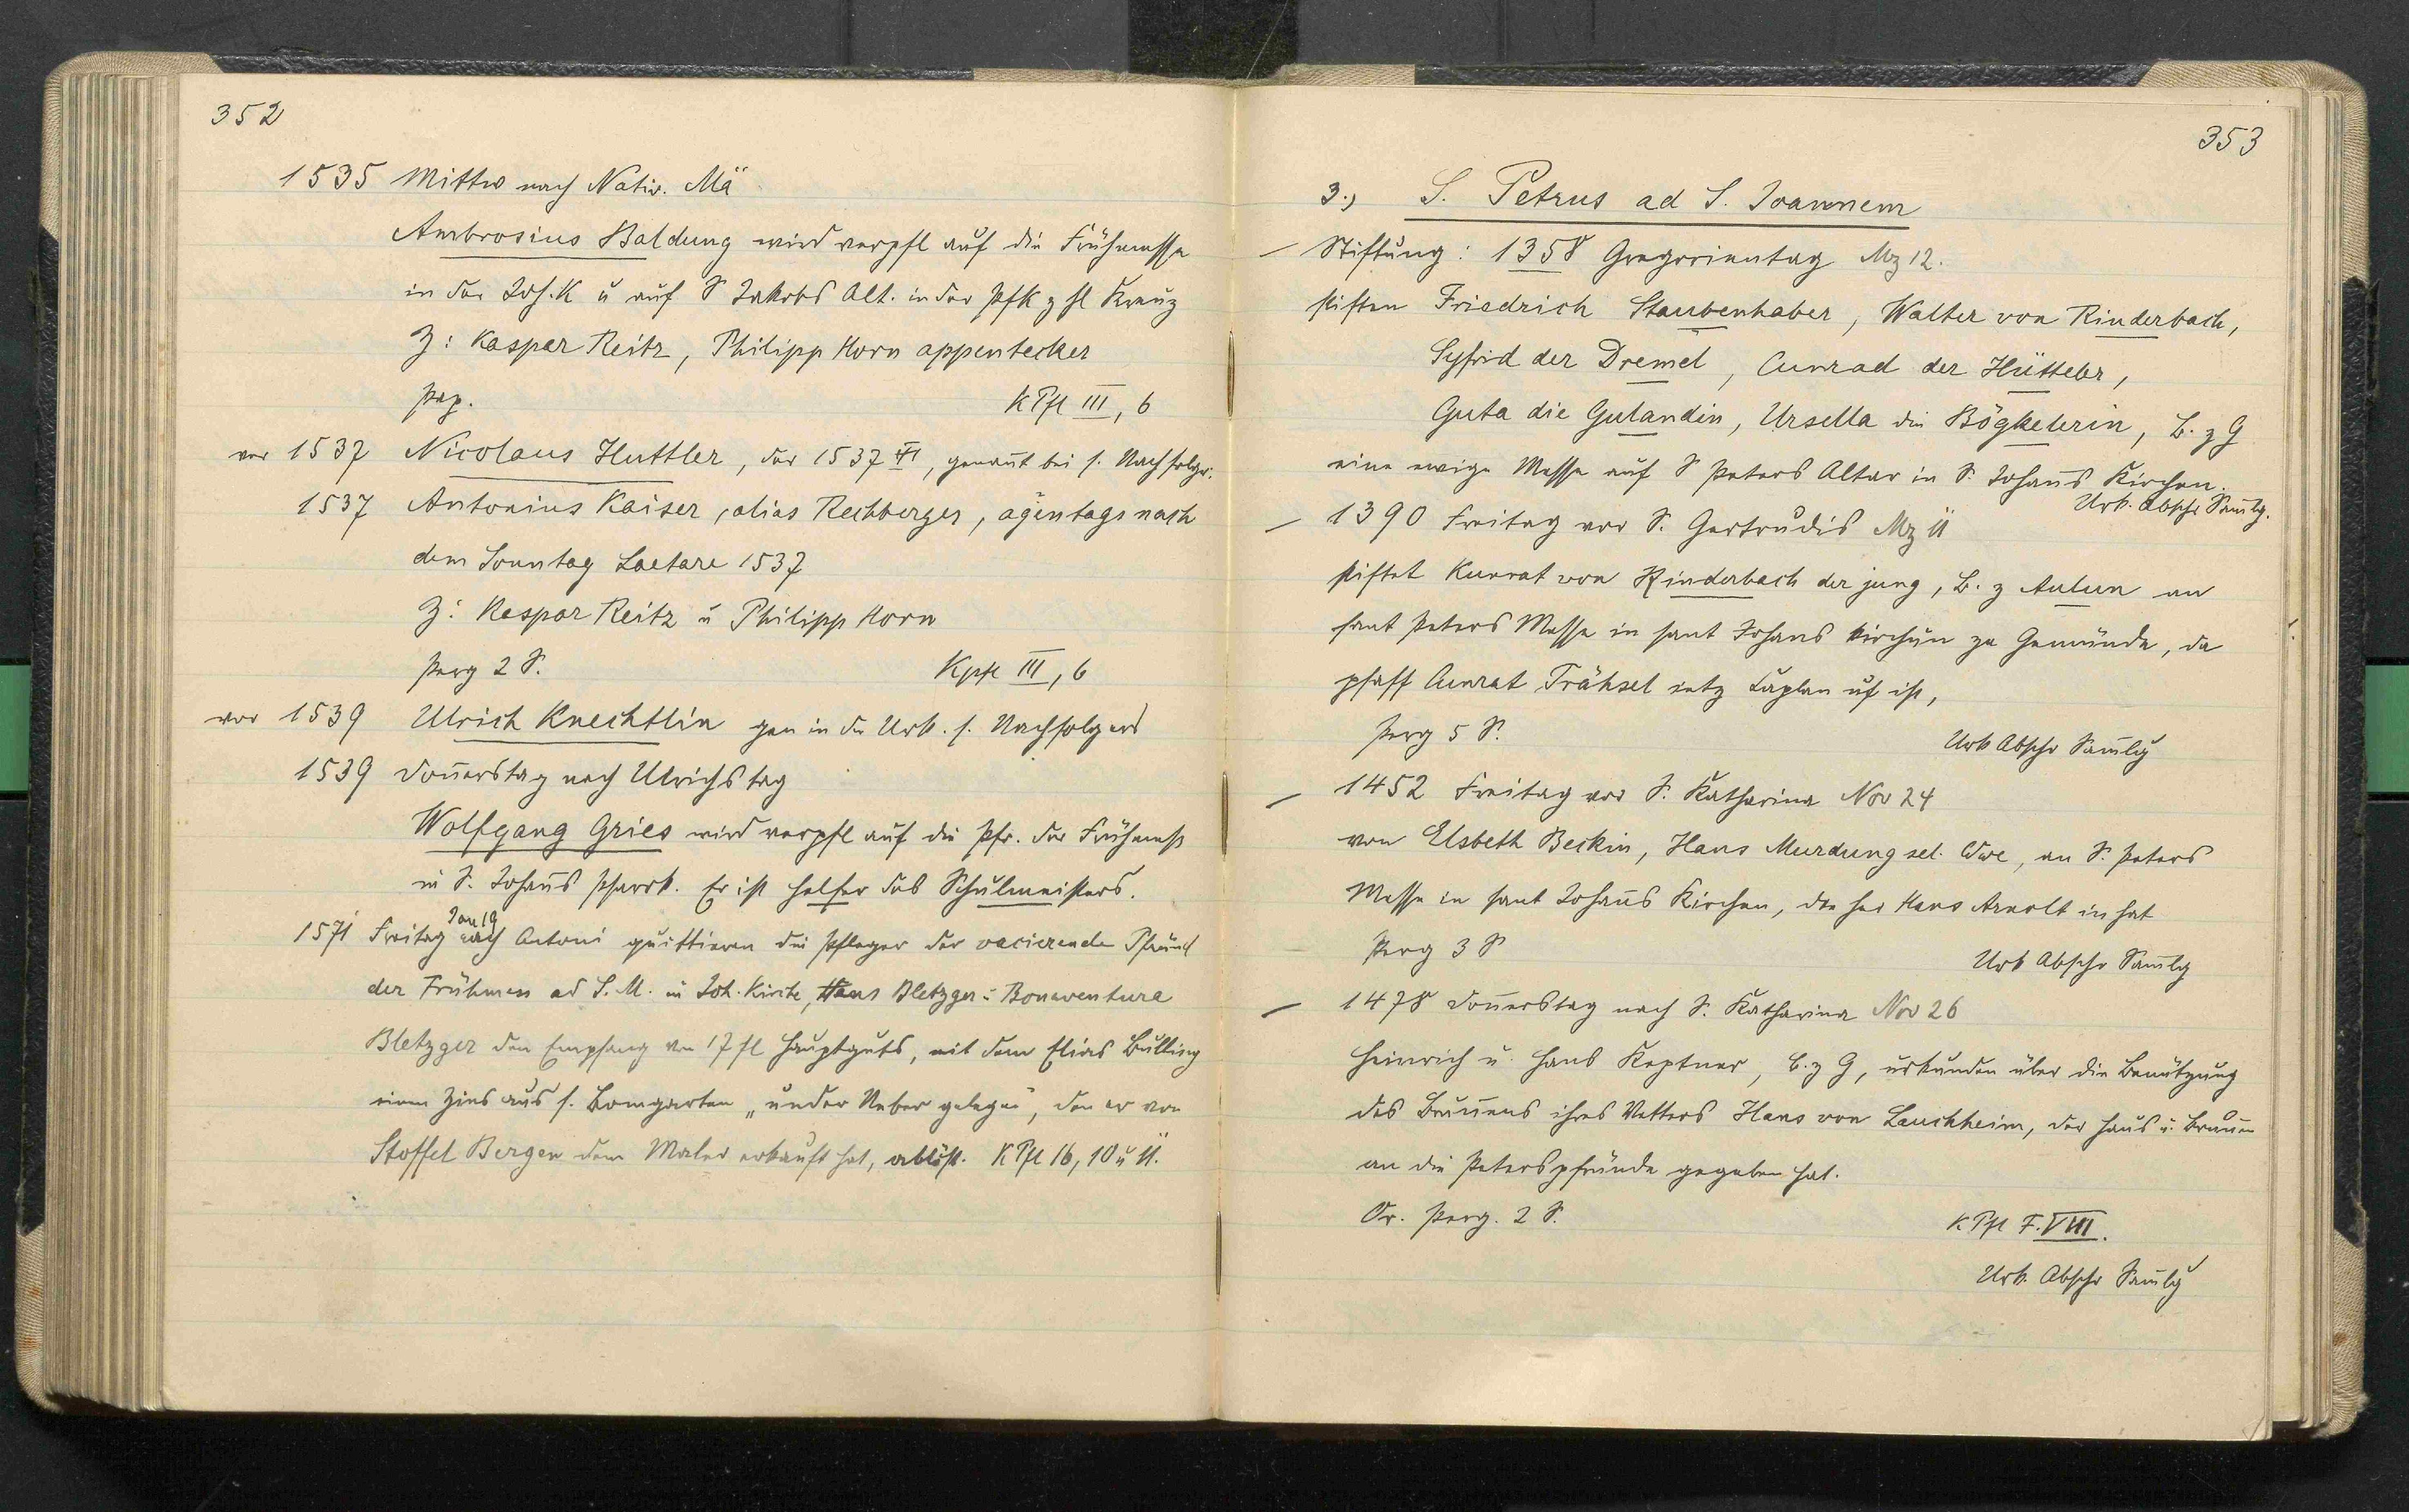 352
1535 Mittw nach Nativ. Mä
Ambrosius Baldung wird verpfl auf die Frühmesse
in der Joh. K u auf S Jakobs Alt. in der Pfk z hl Kreuz
Z: Kaspar Reitz, Philipp Horn appentecker
Pap. KPfl III, 6
vor 1537 Nicolaus Huttler, der 1537 VI, genant bei s. Nachfolger.
1537 Antonius Kaiser, alias Rechberger, agentags nach
dem Sonntag Laetare 1537
Z: Kaspar Reitz u Philipp Horn
Perg 2 S. Kpfl III, 6
vor 1539 Ulrich Knechtlin gen in der Urk. s. Nachfolgers
1539 Donerstag nach Ulrichstag
Wolfgang Gries wird verpfl auf die Pfr. der Frühmeß
in S. Johans Pfarrk. Er ist Helfer des Schulmeisters.
Jan 19
1571 Freitag nach Antoni quittieren die Pfleger der vacierende Pfründ
der Frühmess ad S. M. in Joh. Kirche, Hans Bletzger u Bonaventura
Bletzger den Empfang von 17 fl Hauptguts, mit dem Elias Bulling
einen Zins aus s. Bomgarten „under Neber gelegen", den er von
Stoffel Bergen dem Maler erkauft hat, ablöst. KPfl 16, 10 u 11.
353
3.) S. Petrus ad S. Joannem
Stiftung: 1358 Gregorientag Mz 12.
stiften Friedrich Staubenhaber, Walter von Rinderbach,
Syfrid der Dremel, Cunrad der Hütteler,
Guta die Gulandin, Ursella die Bögkelerin, B. z G
eine ewige Messe auf S Peters Altar in S. Johans Kirchen.
Urk. Abschr Samlg.
1390 Freitag vor S. Gertrudis Mz 11
stiftet Kunrat von Rinderbach der jung, B. z Aulun an
sant Peters Messe in sant Johans kirchun ze Gemünde, da
pfaff Cunrat Trähsel ietz Caplan uf ist,
Perg 5 S. Urk Abschr Samlg
1452 Freitag vor S. Katharina Nov 24
von Elsbeth Beckin, Hans Murdung sel. Wwe, an S. Peters
Messe in sant Johans Kirchen, die her Hans Arnolt in hat
Perg 3 S Urk Abschr Samlg
1478 Donerstag nach S. Katharina Nov 26
Heinrich u. Hans Keptner, B. z G, urkunden über die Benützung
des Brunens ihres Vetters Hans von Lauchheim, der Haus u. Brunen
an die Peterspfründe gegeben hat.
Or. Perg. 2 S. KPfl F. VIII.
Urk. Abschr Samlg